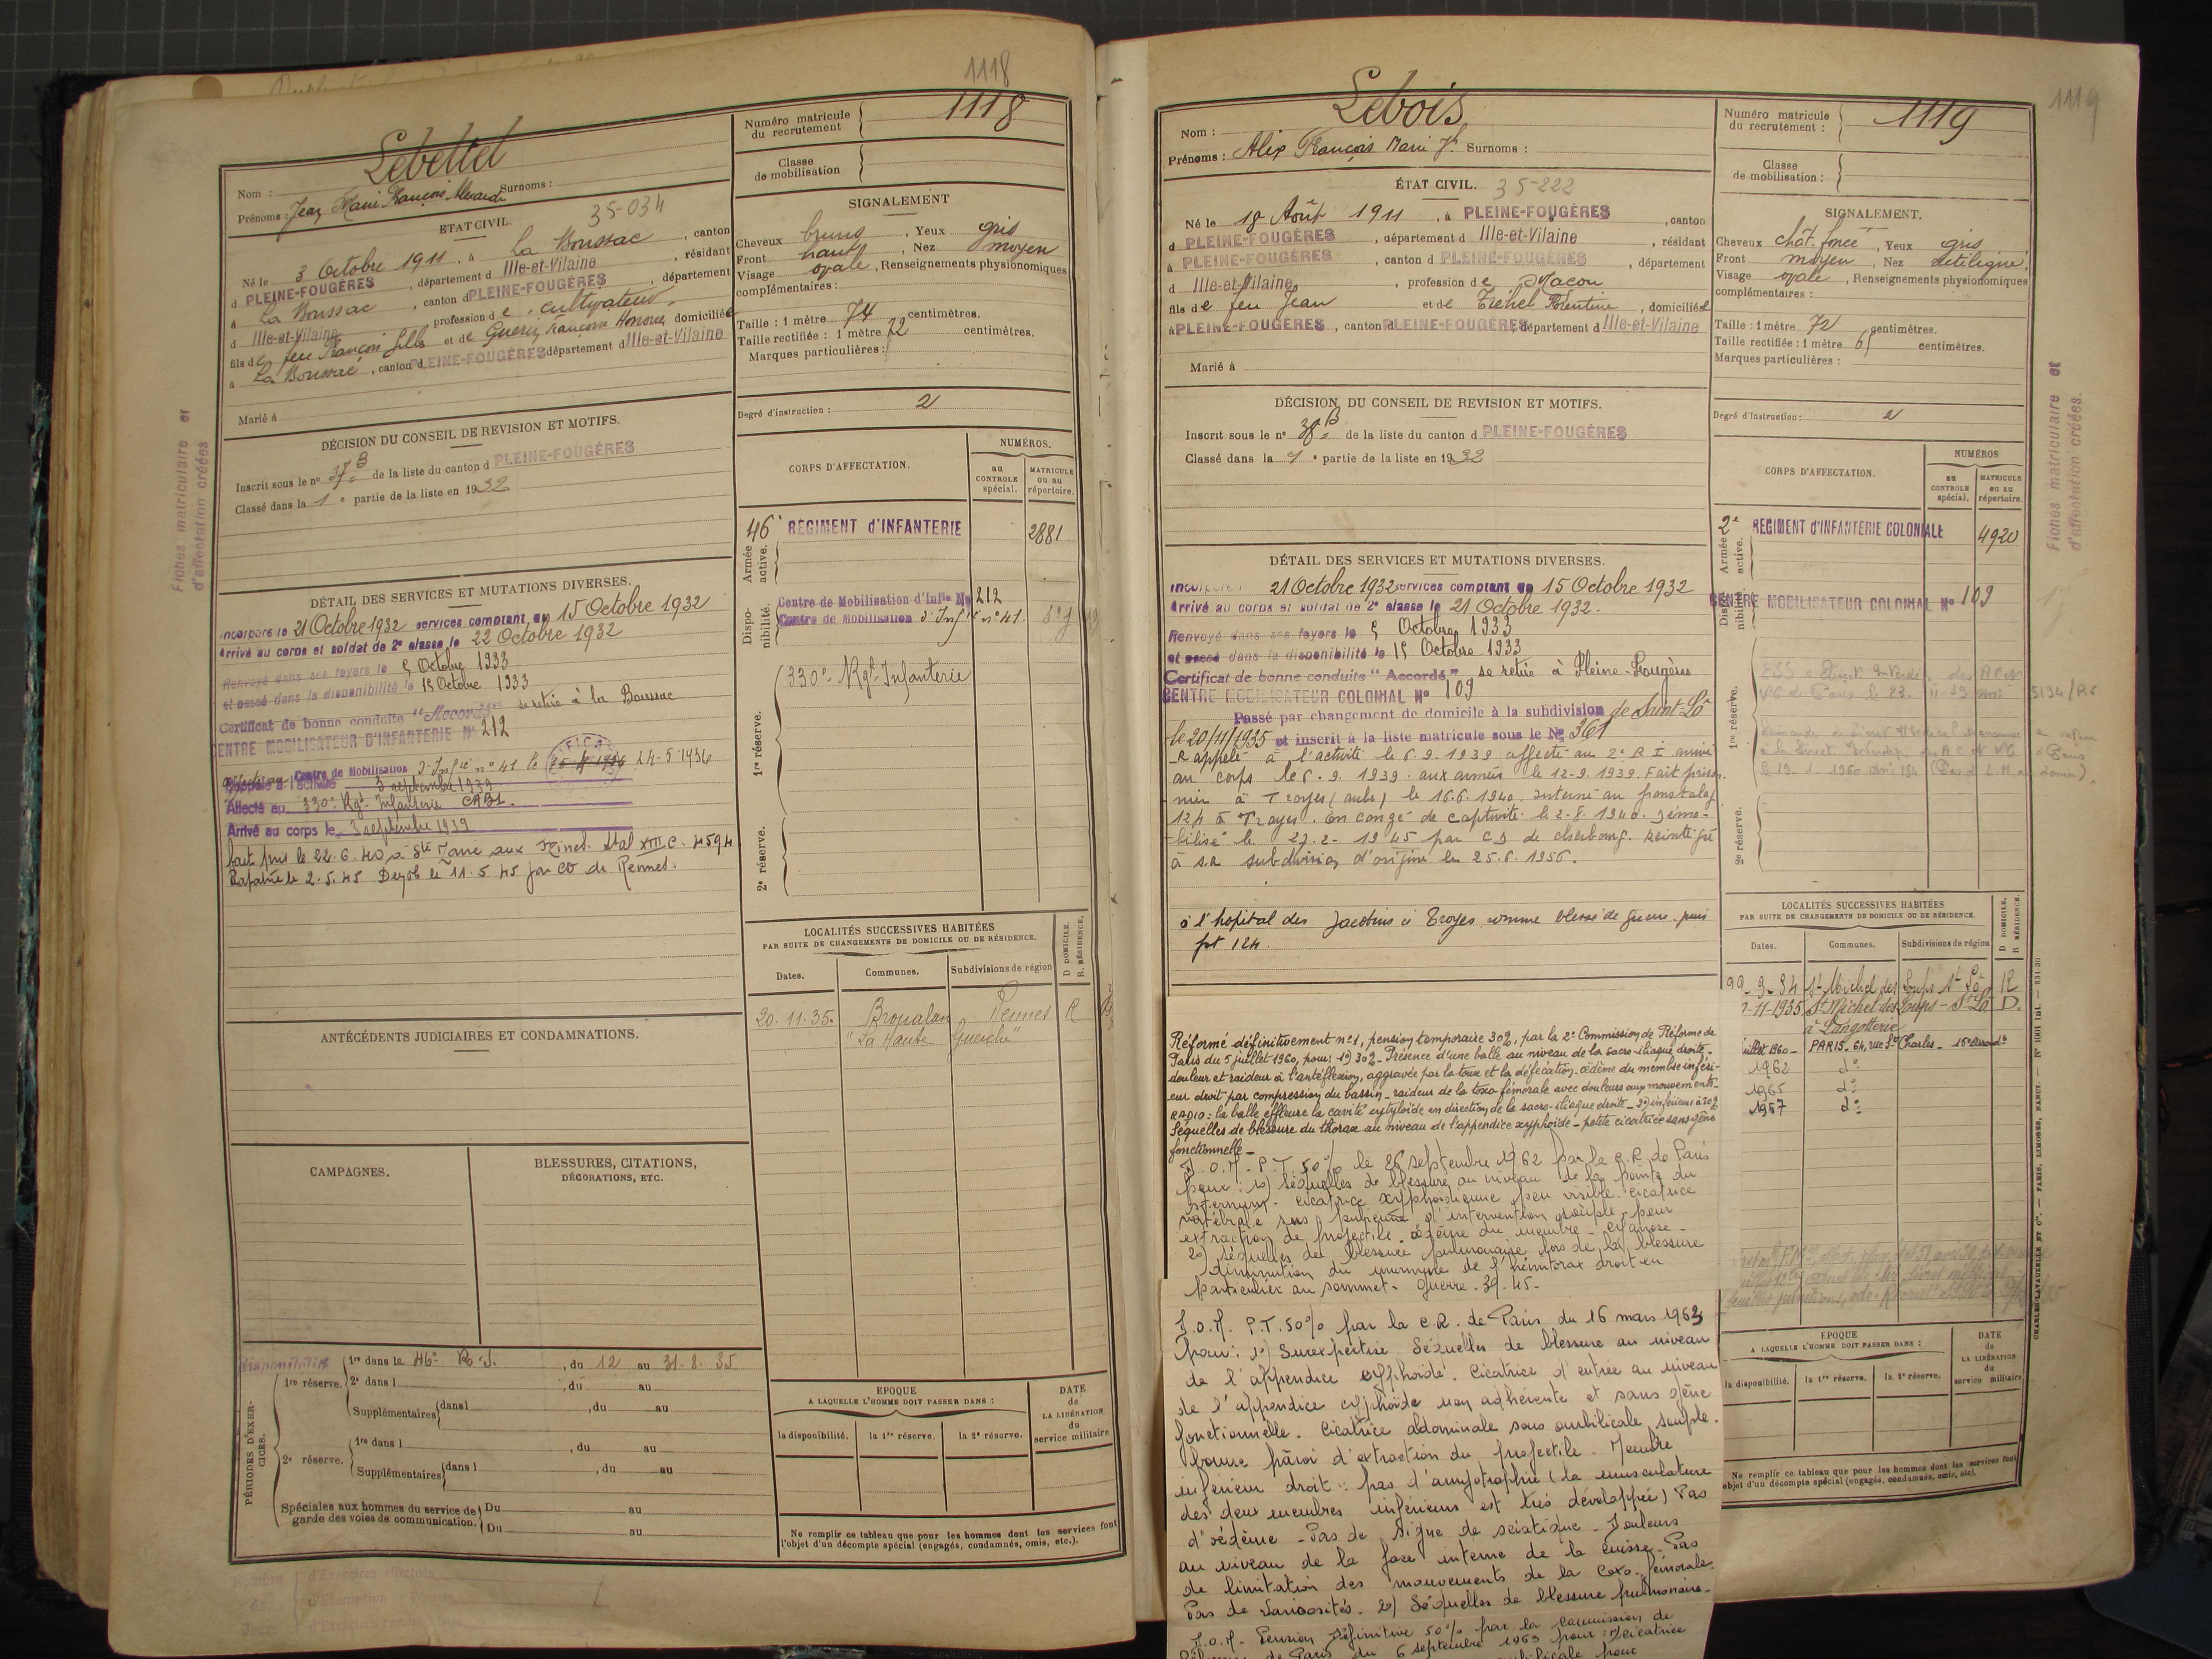 1118
Lebettel
Nom :
Prénoms : Jean Marie François Surnoms :
ÉTAT CIVIL. 35-034
Né le 3 Octobre 1911, à La Boussac, canton
d PLEINE-FOUGÈRES, département d Ille-et-Vilaine, résidant
à La Boussac, canton d PLEINE-FOUGÈRES, département
d Ille-et-Vilaine profession de cultivateur,
fils de feu François Gilles et de Françoise Honorée domiciliée
à La Boussac, canton d PLEINE-FOUGÈRES département d Ille-et-Vilaine
Marié à
DÉCISION DU CONSEIL DE REVISION ET MOTIFS.
Inscrit sous le n° 37 B de la liste du canton d PLEINE-FOUGÈRES
Classé dans la 1e partie de la liste en 1932
DÉTAIL DES SERVICES ET MUTATIONS DIVERSES.
Incorporé le 21 Octobre 1932 services comptant du 15 Octobre 1932
Arrivé au corps et soldat de 2e classe le 22 Octobre 1932
Renvoyé dans ses foyers le 5 Octobre 1933
et passé dans la disponibilité le 15 Octobre 1933
Certificat de bonne conduite "Accordé" se retire à la Boussac
CENTRE MOBILISATEUR D'INFANTERIE N° 212
Centre de Mobilisation d'Infie n° 41 le 24-5-1936
Rappelé à l'activité 3 septembre 1939
Affecté au 330e Rgt Infanterie
Arrivé au corps le 3 septembre 1939
Fait pris le 22.6.40 à Ste Marie aux Mines. Stal XIII C. 4594
Rapatrié le 2.5.45 Demob le 11.5.45 par CD de Rennes.
ANTÉCÉDENTS JUDICIAIRES ET CONDAMNATIONS.
CAMPAGNES.
BLESSURES, CITATIONS,
DÉCORATIONS, ETC.
disponibilité
PÉRIODES D'EXERCICES.
1re réserve. 1re dans le 46e R.I., du 12 au 31.8.35
2e dans l , du au
Supplémentaires dans l , du au
2e réserve. 1re dans l , du au
Supplémentaires dans l , du au
Spéciales aux hommes du service de garde des voies de communication. Du au
Du au
Numéro matricule
du recrutement 1118
Classe
de mobilisation
SIGNALEMENT
Cheveux bruns, Yeux gris
Front haut, Nez moyen
Visage ovale, Renseignements physionomiques
complémentaires :
Taille : 1 mètre 74 centimètres.
Taille rectifiée : 1 mètre 72 centimètres.
Marques particulières :
Degré d'instruction : 2
CORPS D'AFFECTATION.
NUMÉROS.
au CONTROLE spécial.
MATRICULE ou au répertoire.
Armée active.
46e RÉGIMENT d'INFANTERIE 2881
Disponibilité.
Centre de Mobilisation d'Infie N° 212
Centre de Mobilisation d'Infie n° 41.
1re réserve.
330e Rgt Infanterie
2e réserve.
LOCALITÉS SUCCESSIVES HABITÉES
PAR SUITE DE CHANGEMENTS DE DOMICILE OU DE RÉSIDENCE.
D DOMICILE. R RÉSIDENCE.
Dates. Communes. Subdivisions de région
20.11.35. Broualan Rennes R
"La Haute Guerche"
EPOQUE
A LAQUELLE L'HOMME DOIT PASSER DANS :
DATE de LA LIBÉRATION du service militaire
la disponibilité. la 1re réserve. la 2e réserve.
Ne remplir ce tableau que pour les hommes dont les services font
l'objet d'un décompte spécial (engagés, condamnés, omis, etc.).
Fiches matriculaire et
d'affectation créées
1119
Lebois
Nom :
Prénoms : Alix François Marie Jh Surnoms :
ÉTAT CIVIL. 35-222
Né le 18 Août 1911, à PLEINE-FOUGÈRES, canton
d PLEINE-FOUGÈRES, département d Ille-et-Vilaine, résidant
à PLEINE-FOUGÈRES, canton d PLEINE-FOUGÈRES, département
d Ille-et-Vilaine, profession de Maçon
fils de feu Jean et de Tréhel Florentine, domiciliée
à PLEINE-FOUGÈRES, canton PLEINE-FOUGÈRES département d Ille-et-Vilaine
Marié à
DÉCISION DU CONSEIL DE REVISION ET MOTIFS.
Inscrit sous le n° 38 B de la liste du canton d PLEINE-FOUGÈRES
Classé dans la 1e partie de la liste en 1932
DÉTAIL DES SERVICES ET MUTATIONS DIVERSES.
Incorporé 21 Octobre 1932 services comptant du 15 Octobre 1932
Arrivé au corps et soldat de 2e classe le 21 Octobre 1932.
Renvoyé dans ses foyers le 5 Octobre 1933
et passé dans la disponibilité le 15 Octobre 1933
Certificat de bonne conduite "Accordé" se retire à Pleine-Fougères
CENTRE MOBILISATEUR COLONIAL N° 109
Passé par changement de domicile à la subdivision de Saint-Lô
le 20/11/1935 et inscrit à la liste matricule sous le N° 361
Rappelé à l'activité le 6.9.1939 affecté au 2e R I arrivé
au corps le 6.9.1939. aux armées le 12-9.1939. Fait prison-
nier à Troyes (aube) le 16.6.1940. Interné au fronstalag
124 à Troyes. En congé de captivité le 2-8.1940. Démo-
bilisé le 27.2-1945 par CD de cherbourg. Réintégré
à sa subdivision d'origine le 25.6.1956.
à l'hopital des Jacobins à Troyes comme blessé de guerre puis
fst 124.
Réformé définitivement n°1, pension temporaire 30%, par la 2e Commission de Réforme de
Paris du 5 juillet 1960, pour: 1°) 30% - Présence d'une balle au niveau de la sacro-iliaque droite -
douleur et raideur à l'antéflexion, aggravée par la toux et la défécation - œdème du membre inféri-
eur droit par compression du bassin - raideur de la coxo-fémorale avec douleurs aux mouvements -
RADIO: la balle effleure la cavité cytyloïde en direction de la sacro-iliaque droite - 2°) inférieure à 20%
Séquelles de blessure du thorax au niveau de l'appendice xyphoïde - petite cicatrice sans gêne
fonctionnelle -
P.T. 50% le 26 septembre 1962 par la C.R. de Paris
pour: 1°) Séquelles de blessure au niveau de la pointe du
sternum - cicatrice xyphoïdienne peu visible. Cicatrice
d'intervention souple pour
extraction de projectile. œdème du membre - cyanose -
2°) Séquelles de blessure pulmonaire lors de la blessure
diminution du murmure de l'hémithorax droit en
particulier au sommet - Guerre. 39.45 -
P.T. 50% par la C.R. de Paris du 16 mars 1963
Pour: 1°) Surexpertise Séquelles de blessure au niveau
de l'appendice xyphoïde. Cicatrice d'entrée au niveau
de l'appendice xyphoïde non adhérente et sans gêne
fonctionnelle. Cicatrice abdominale sous ombilicale, souple.
bonne paroi d'extraction du projectile. Membre
inférieur droit: pas d'amyotrophie (la musculature
des deux membres inférieurs est très développée) Pas
d'œdème - Pas de signe de sciatique - Douleurs
au niveau de la face interne de la cuisse - Pas
de limitation des mouvements de la Coxo-fémorale.
Pas de Varicosités. 2°) Séquelles de blessure pulmonaire -
Pension Définitive 50% par la Commission de
Réforme de Paris du 6 septembre 1963 pour: 1°) cicatrice
Numéro matricule
du recrutement : 1119
Classe
de mobilisation :
SIGNALEMENT.
Cheveux chât. foncé, Yeux gris
Front moyen, Nez rectiligne,
Visage ovale, Renseignements physionomiques
complémentaires :
Taille : 1 mètre 72 centimètres.
Taille rectifiée : 1 mètre 65 centimètres.
Marques particulières :
Degré d'instruction : 2
CORPS D'AFFECTATION.
NUMÉROS
au CONTROLE spécial.
MATRICULE ou au répertoire.
Armée active.
2e RÉGIMENT d'INFANTERIE COLONIALE 4920
Disponibilité.
CENTRE MOBILISATEUR COLONIAL N° 109
1re réserve.
2e réserve.
LOCALITÉS SUCCESSIVES HABITÉES
PAR SUITE DE CHANGEMENTS DE DOMICILE OU DE RÉSIDENCE.
D DOMICILE. R RÉSIDENCE.
Dates. Communes. Subdivisions de région
9-34 St Michel des Loups St Lô R
11-1935 St Michel des Loups - St Lô D.
à Langotterie
juillet 1960 - PARIS - 64, rue St Charles - 15e arrondt
1962 do
1965 do
1957 do
EPOQUE
A LAQUELLE L'HOMME DOIT PASSER DANS :
DATE de LA LIBÉRATION du service militaire
la disponibilité. la 1re réserve. la 2e réserve.
Ne remplir ce tableau que pour les hommes dont les services font
objet d'un décompte spécial (engagés, condamnés, omis, etc).
Fiches matriculaire et
d'affectation créées.
CHARLES-LAVAUZELLE ET Cie. — PARIS, LIMOGES, NANCY. — N° 1001 Int. — 831-30
1119